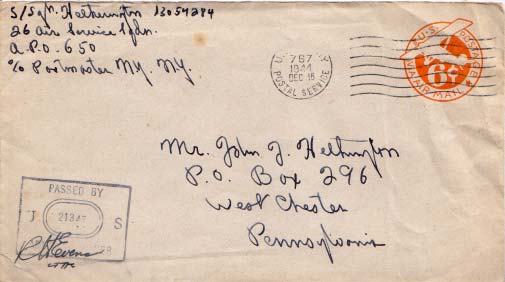 S/Sgt. Hetherington 13054284
26 Air Service Sqdn.
A.P.O. 650
c/o Postmaster N.Y. N.Y.
U.S.
767
1944
DEC 15
POSTAL SERVICE
U.S. POSTAGE
6¢
VIA AIR MAIL
Mr. John J. Hethington
P.O. Box 296
West Chester
Pennsylvania
PASSED BY
U S
21347